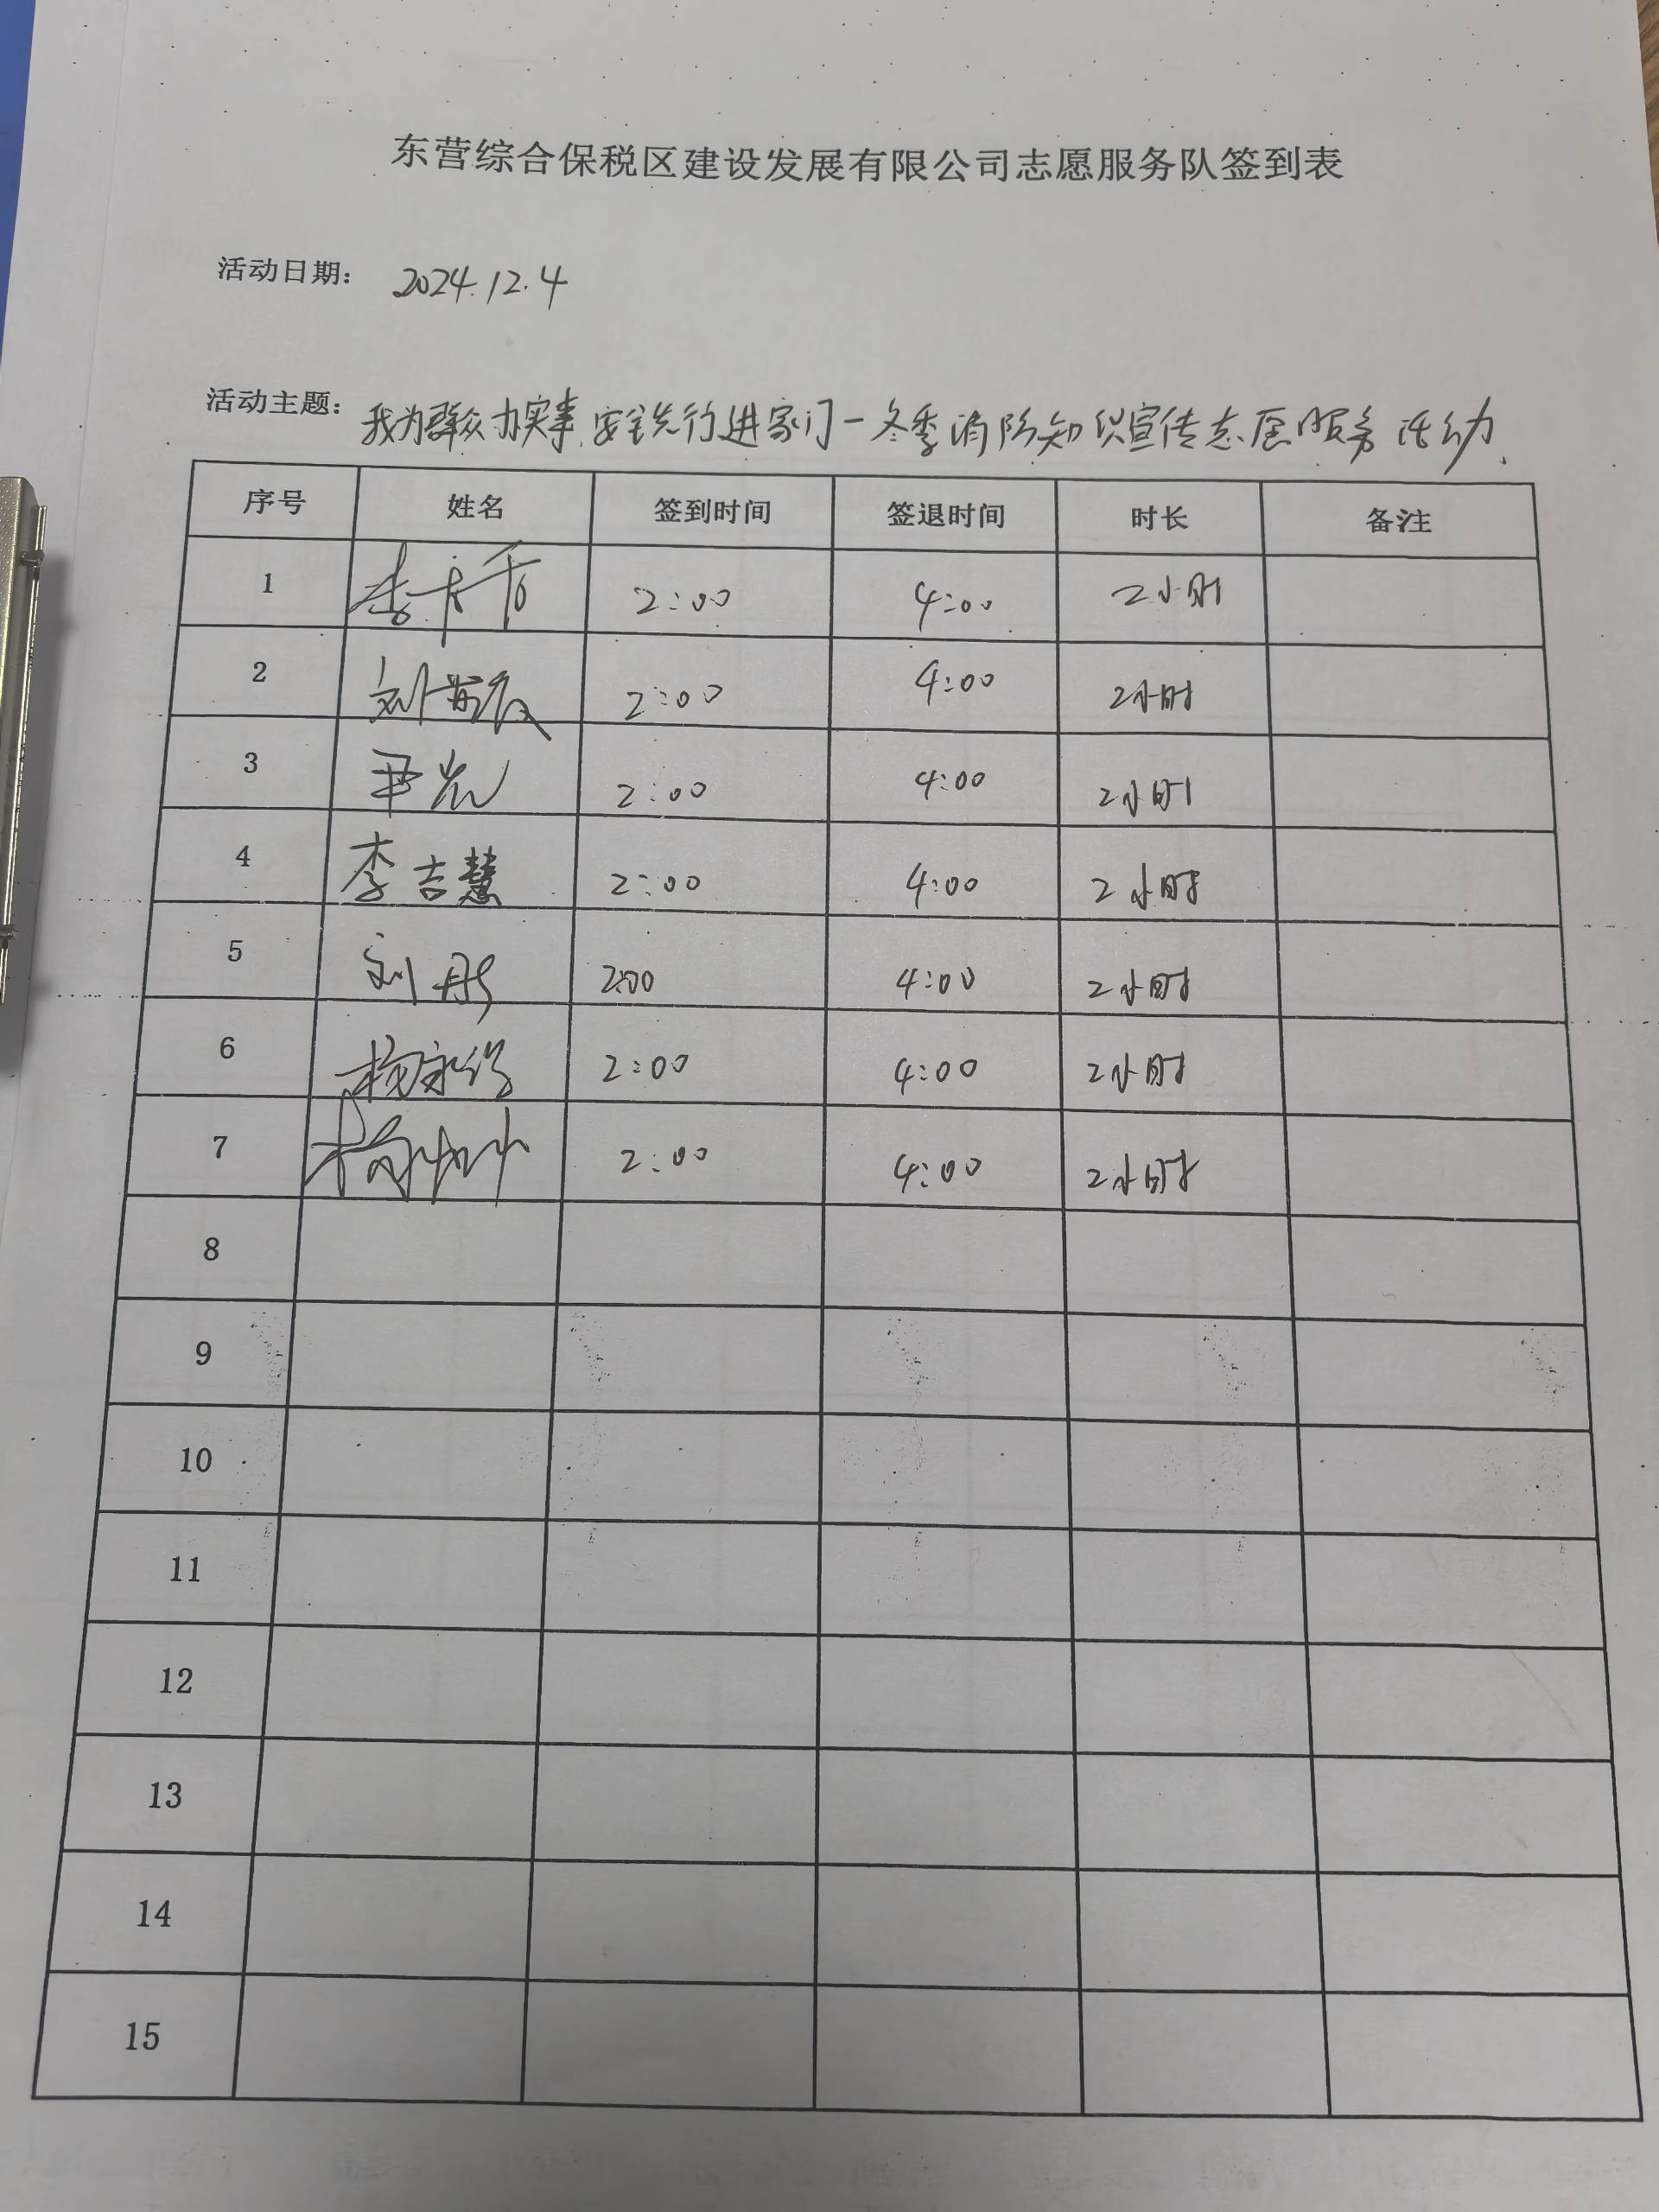 东营综合保税区建设发展有限公司志愿服务队签到表
活动日期： 2024.12.4
活动主题： 我为群众办实事,安全先行进家门-冬季消防知识宣传志愿服务活动
序号 姓名 签到时间 签退时间 时长 备注
1 李 2:00 4:00 2小时
2 刘 2:00 4:00 2小时
3 尹 2:00 4:00 2小时
4 李吉慧 2:00 4:00 2小时
5 刘彤 2:00 4:00 2小时
6 杨 2:00 4:00 2小时
7 2:00 4:00 2小时
8
9
10
11
12
13
14
15